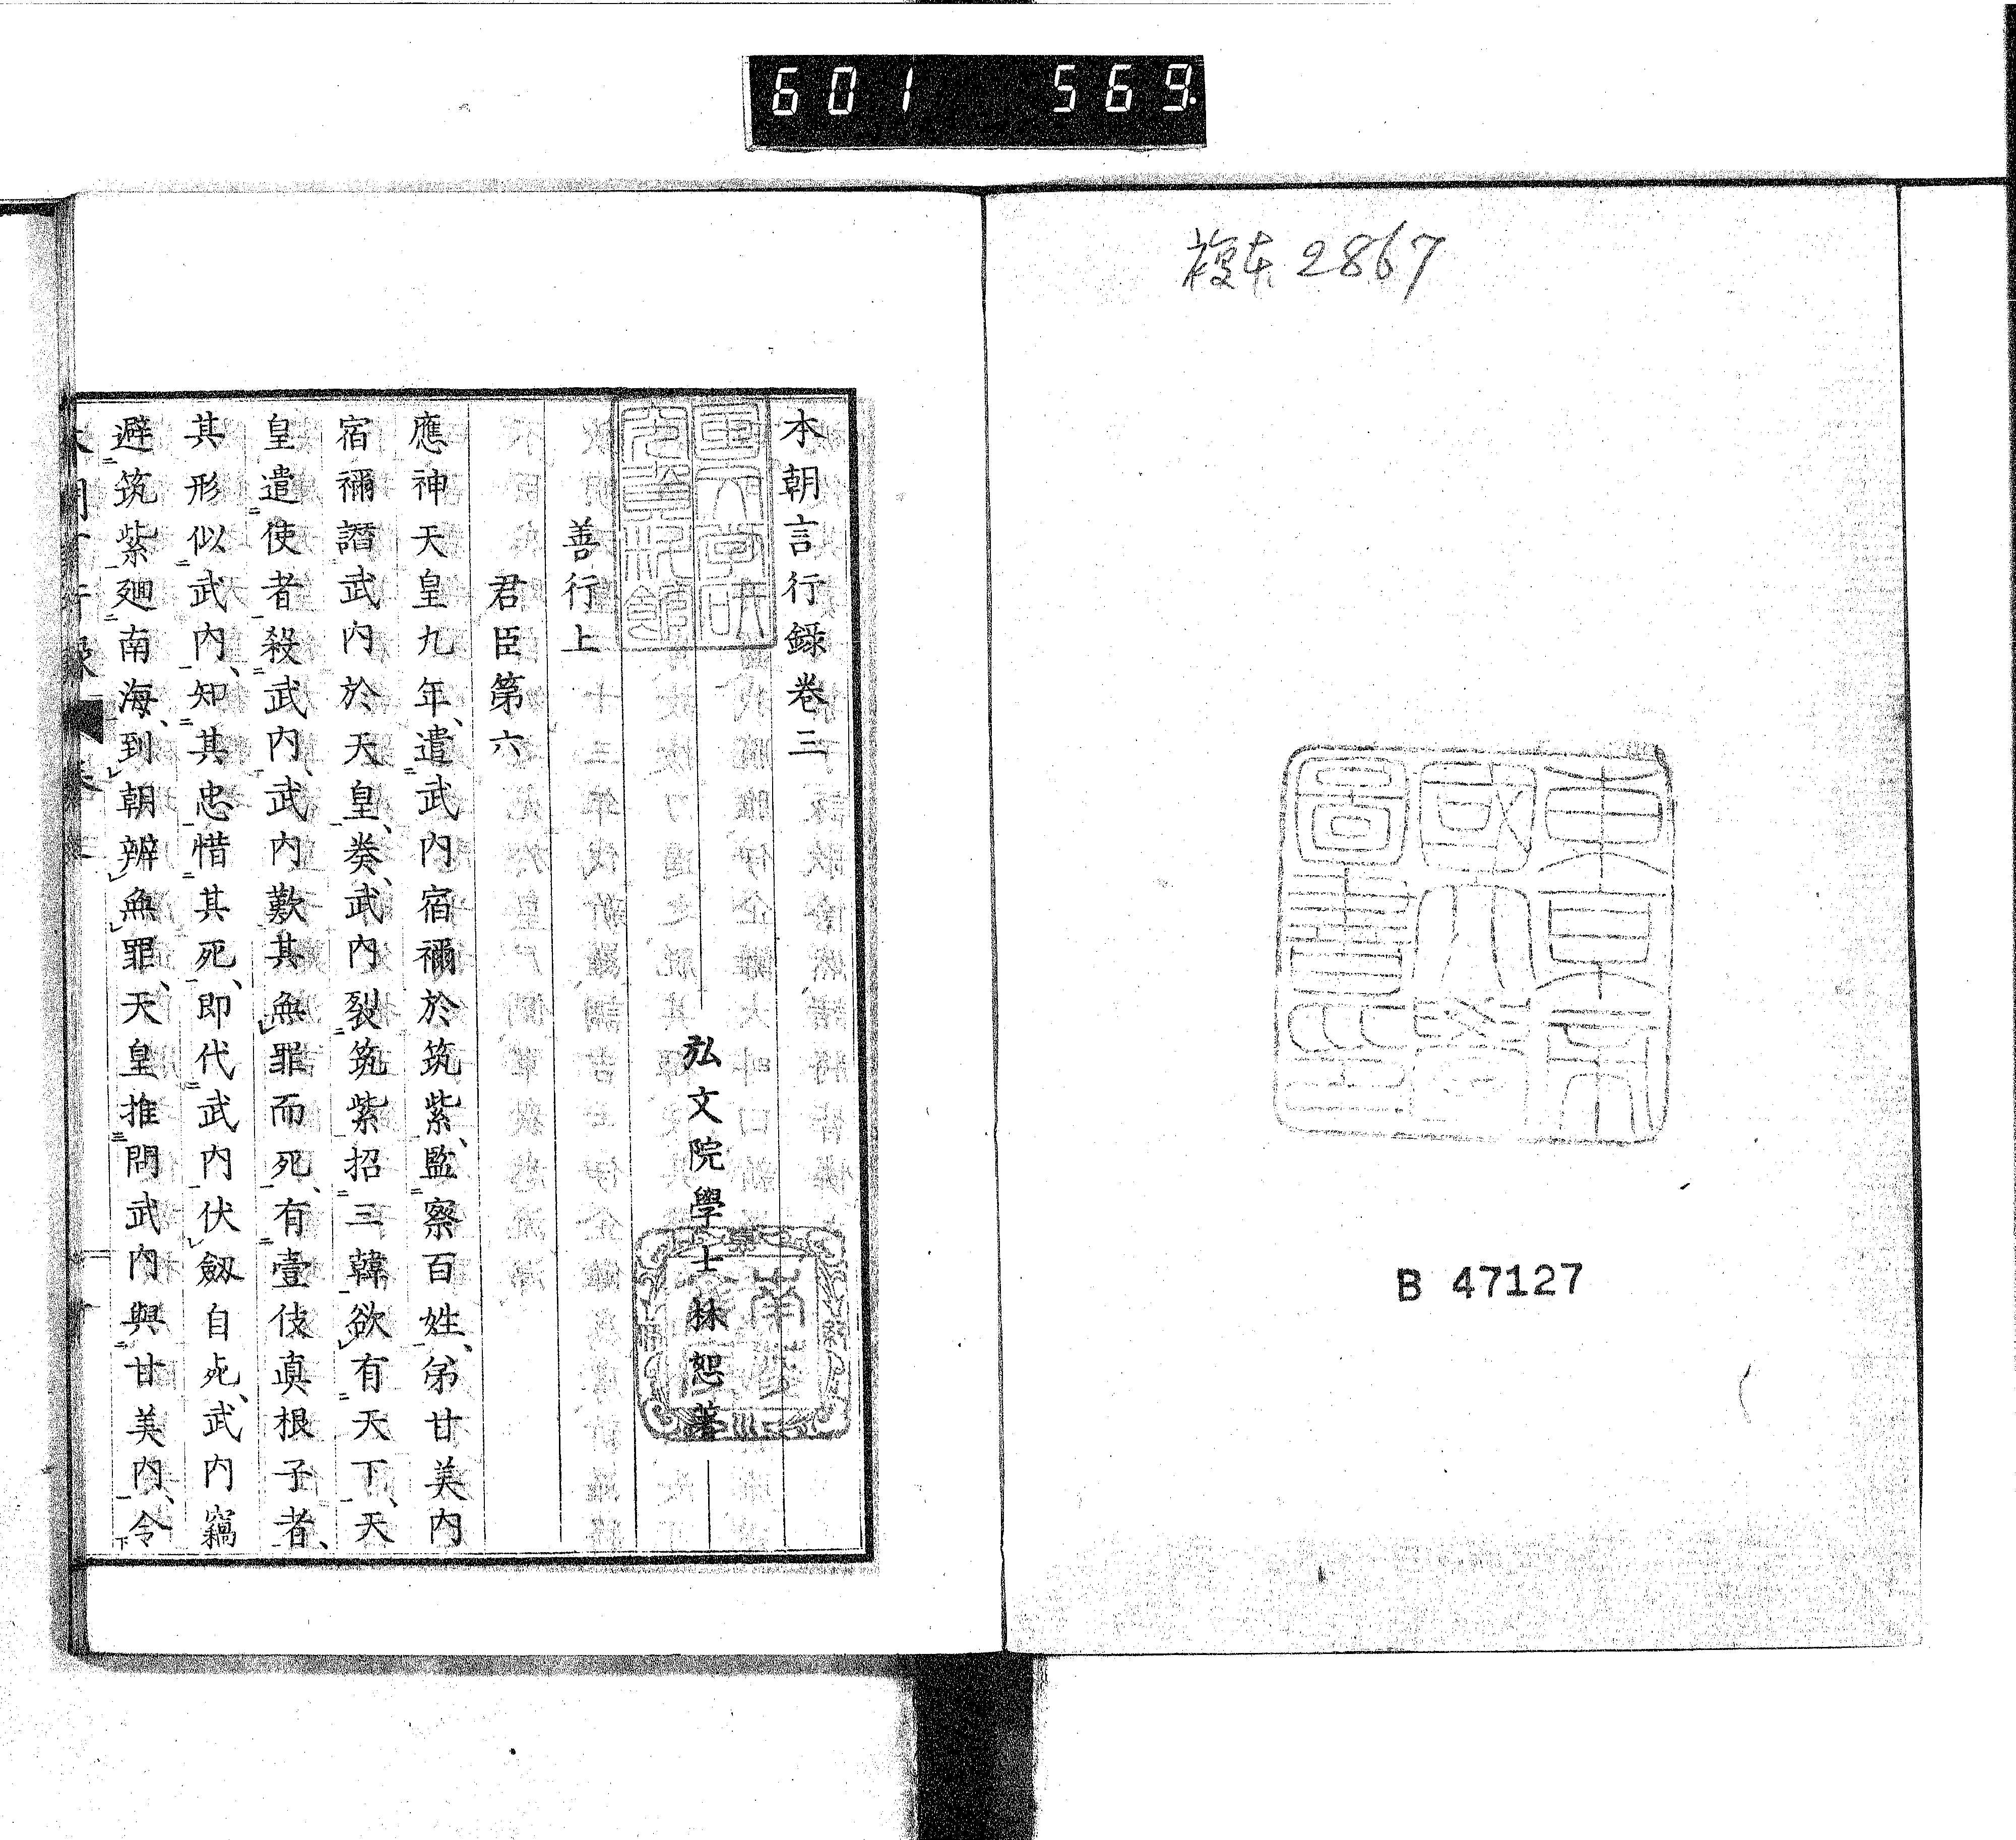 601 569
複本 2867
東京
國大學
圖書印
B 47127
本朝言行録卷三
弘文院學士林恕著
善行上
君臣第六
應神天皇九年、遣武内宿禰於筑紫、監察百姓、弟甘美内
宿禰譖武内於天皇、奏、武内裂筑紫招三韓欲有天下、天
皇遣使者殺武内、武内歎其無罪而死、有壹伎真根子者、
其形似武内、知其忠惜其死、即代武内伏劔自死、武内竊
避筑紫廻南海、到朝辨無罪、天皇推問武内與甘美内、令